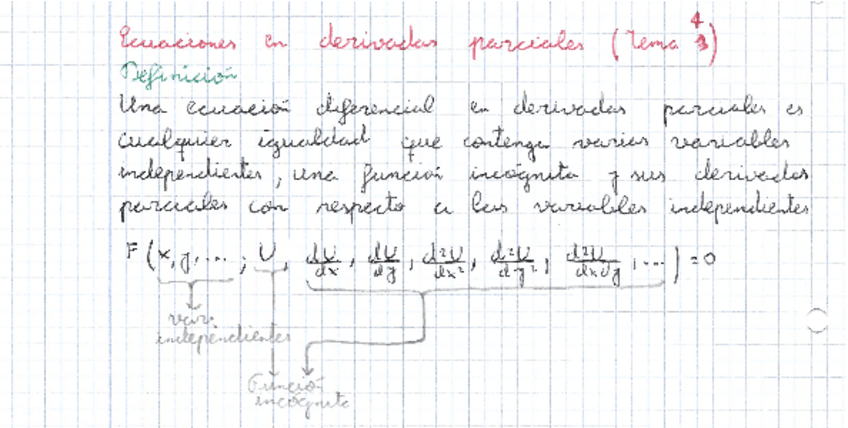 Ecuaciones en derivadas parciales (Tema 4)
Definición
Una ecuación diferencial en derivadas parciales es
cualquier igualdad que contenga varias variables
independientes, una función incógnita y sus derivadas
parciales con respecto a las variables independientes
F(x, y, ... ; U, dU/dx, dU/dy, d²U/dx², d²U/dy², d²U/dxdy, ...) = 0
var.
independientes
Función
incógnita